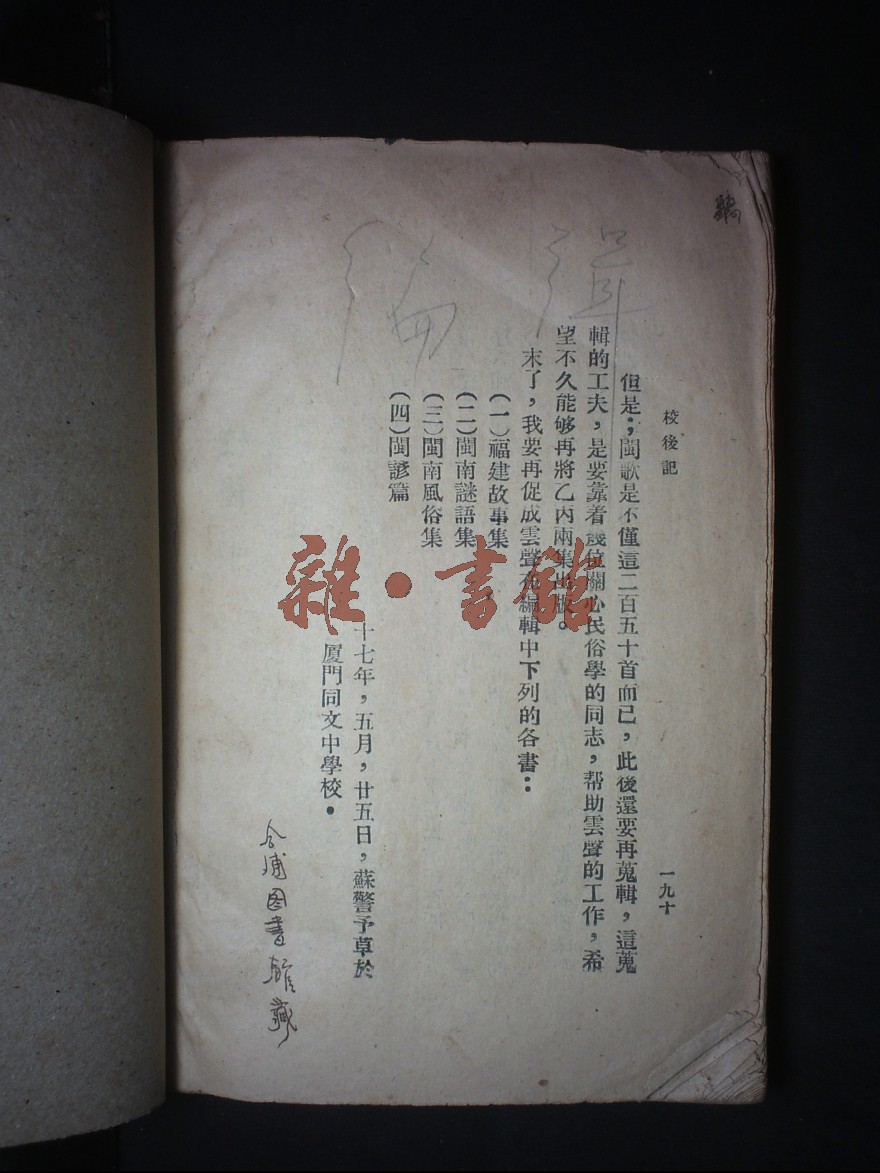 校後記
一九十
但是；閩歌是不僅這二百五十首而已，此後還要再蒐輯，這蒐
輯的工夫，是要靠着幾位關心民俗學的同志，帮助雲聲的工作，希
望不久能够再將乙丙兩集出版。
末了，我要再促成雲聲在編輯中下列的各書：
(一)福建故事集
(二)閩南謎語集
(三)閩南風俗集
(四)閩諺篇
十七年，五月，廿五日，蘇警予草於
厦門同文中學校。
編輯
合浦図書館藏
雜·書館